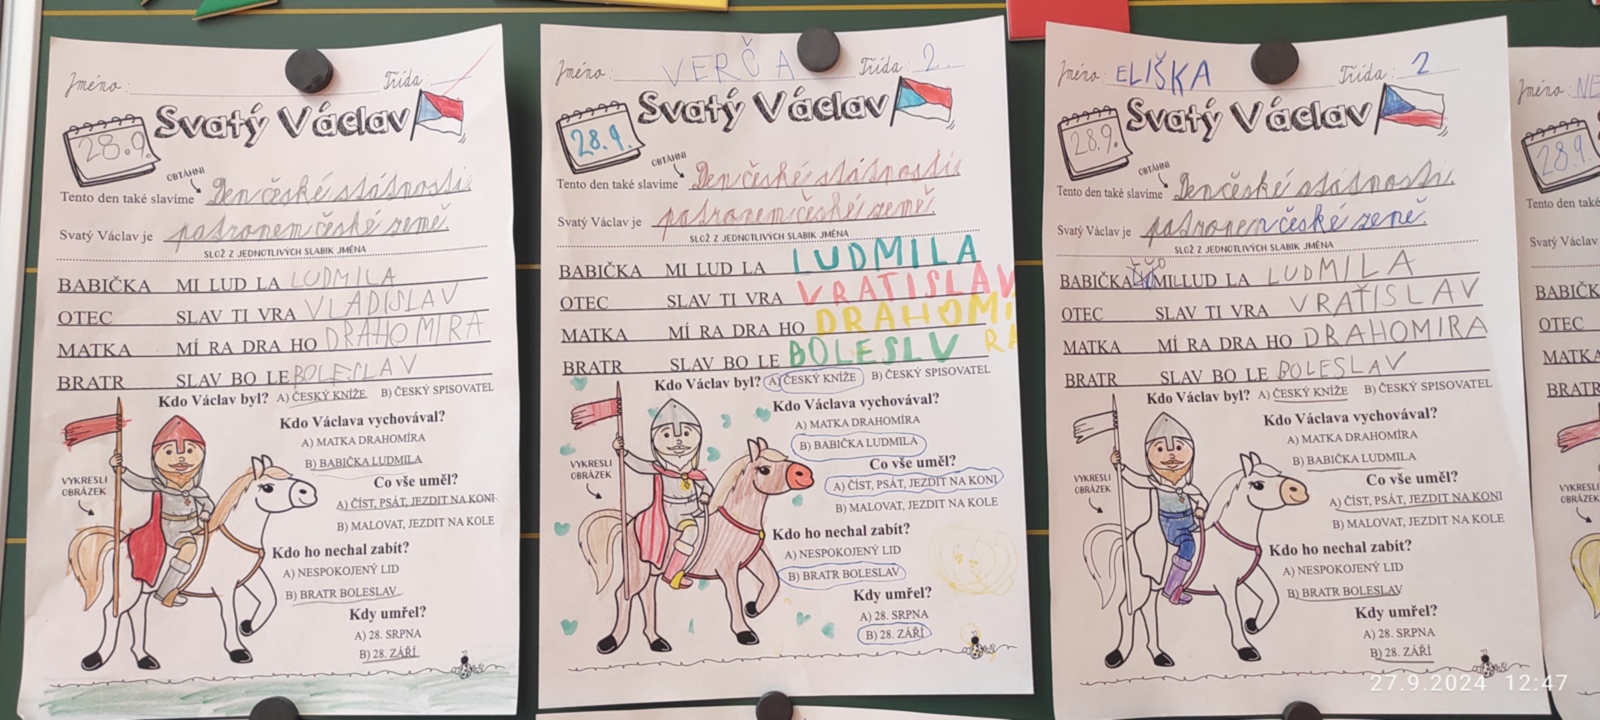 Jméno: Třída:
Svatý Václav
28.9.
OBTÁHNI
Tento den také slavíme Den české státnosti
Svatý Václav je patronem české země.
SLOŽ Z JEDNOTLIVÝCH SLABIK JMÉNA
BABIČKA MI LUD LA LUDMILA
OTEC SLAV TI VRA VLADISLAV
MATKA MÍ RA DRA HO DRAHOMIRA
BRATR SLAV BO LE BOLESLAV
Kdo Václav byl? A) ČESKÝ KNÍŽE B) ČESKÝ SPISOVATEL
Kdo Václava vychovával?
A) MATKA DRAHOMÍRA
B) BABIČKA LUDMILA
VYKRESLI
OBRÁZEK
Co vše uměl?
A) ČÍST, PSÁT, JEZDIT NA KONI
B) MALOVAT, JEZDIT NA KOLE
Kdo ho nechal zabít?
A) NESPOKOJENÝ LID
B) BRATR BOLESLAV
Kdy umřel?
A) 28. SRPNA
B) 28. ZÁŘÍ
Jméno: VERČA Třída: 2.
Svatý Václav
28.9.
OBTÁHNI
Tento den také slavíme Den české státnosti
Svatý Václav je patronem české země.
SLOŽ Z JEDNOTLIVÝCH SLABIK JMÉNA
BABIČKA MI LUD LA LUDMILA
OTEC SLAV TI VRA VRATISLAV
MATKA MÍ RA DRA HO DRAHOMI
RA
BRATR SLAV BO LE BOLESLV
Kdo Václav byl? A) ČESKÝ KNÍŽE B) ČESKÝ SPISOVATEL
Kdo Václava vychovával?
A) MATKA DRAHOMÍRA
B) BABIČKA LUDMILA
VYKRESLI
OBRÁZEK
Co vše uměl?
A) ČÍST, PSÁT, JEZDIT NA KONI
B) MALOVAT, JEZDIT NA KOLE
Kdo ho nechal zabít?
A) NESPOKOJENÝ LID
B) BRATR BOLESLAV
Kdy umřel?
A) 28. SRPNA
B) 28. ZÁŘÍ
Jméno: ELIŠKA Třída: 2
Svatý Václav
28.9.
OBTÁHNI
Tento den také slavíme Den české státnosti
Svatý Václav je patronem české země.
SLOŽ Z JEDNOTLIVÝCH SLABIK JMÉNA
BABIČKA MI LUD LA LUDMILA
OTEC SLAV TI VRA VRAŤISLAV
MATKA MÍ RA DRA HO DRAHOMIRA
BRATR SLAV BO LE BOLESLAV
Kdo Václav byl? A) ČESKÝ KNÍŽE B) ČESKÝ SPISOVATEL
Kdo Václava vychovával?
A) MATKA DRAHOMÍRA
B) BABIČKA LUDMILA
VYKRESLI
OBRÁZEK
Co vše uměl?
A) ČÍST, PSÁT, JEZDIT NA KONI
B) MALOVAT, JEZDIT NA KOLE
Kdo ho nechal zabít?
A) NESPOKOJENÝ LID
B) BRATR BOLESLAV
Kdy umřel?
A) 28. SRPNA
B) 28. ZÁŘÍ
Jméno: NE
28.9.
Tento den
Svatý Václav
BABIČK
OTEC
MATKA
BRATR
VYKRESLI
OBRÁZEK
27.9.2024 12:47